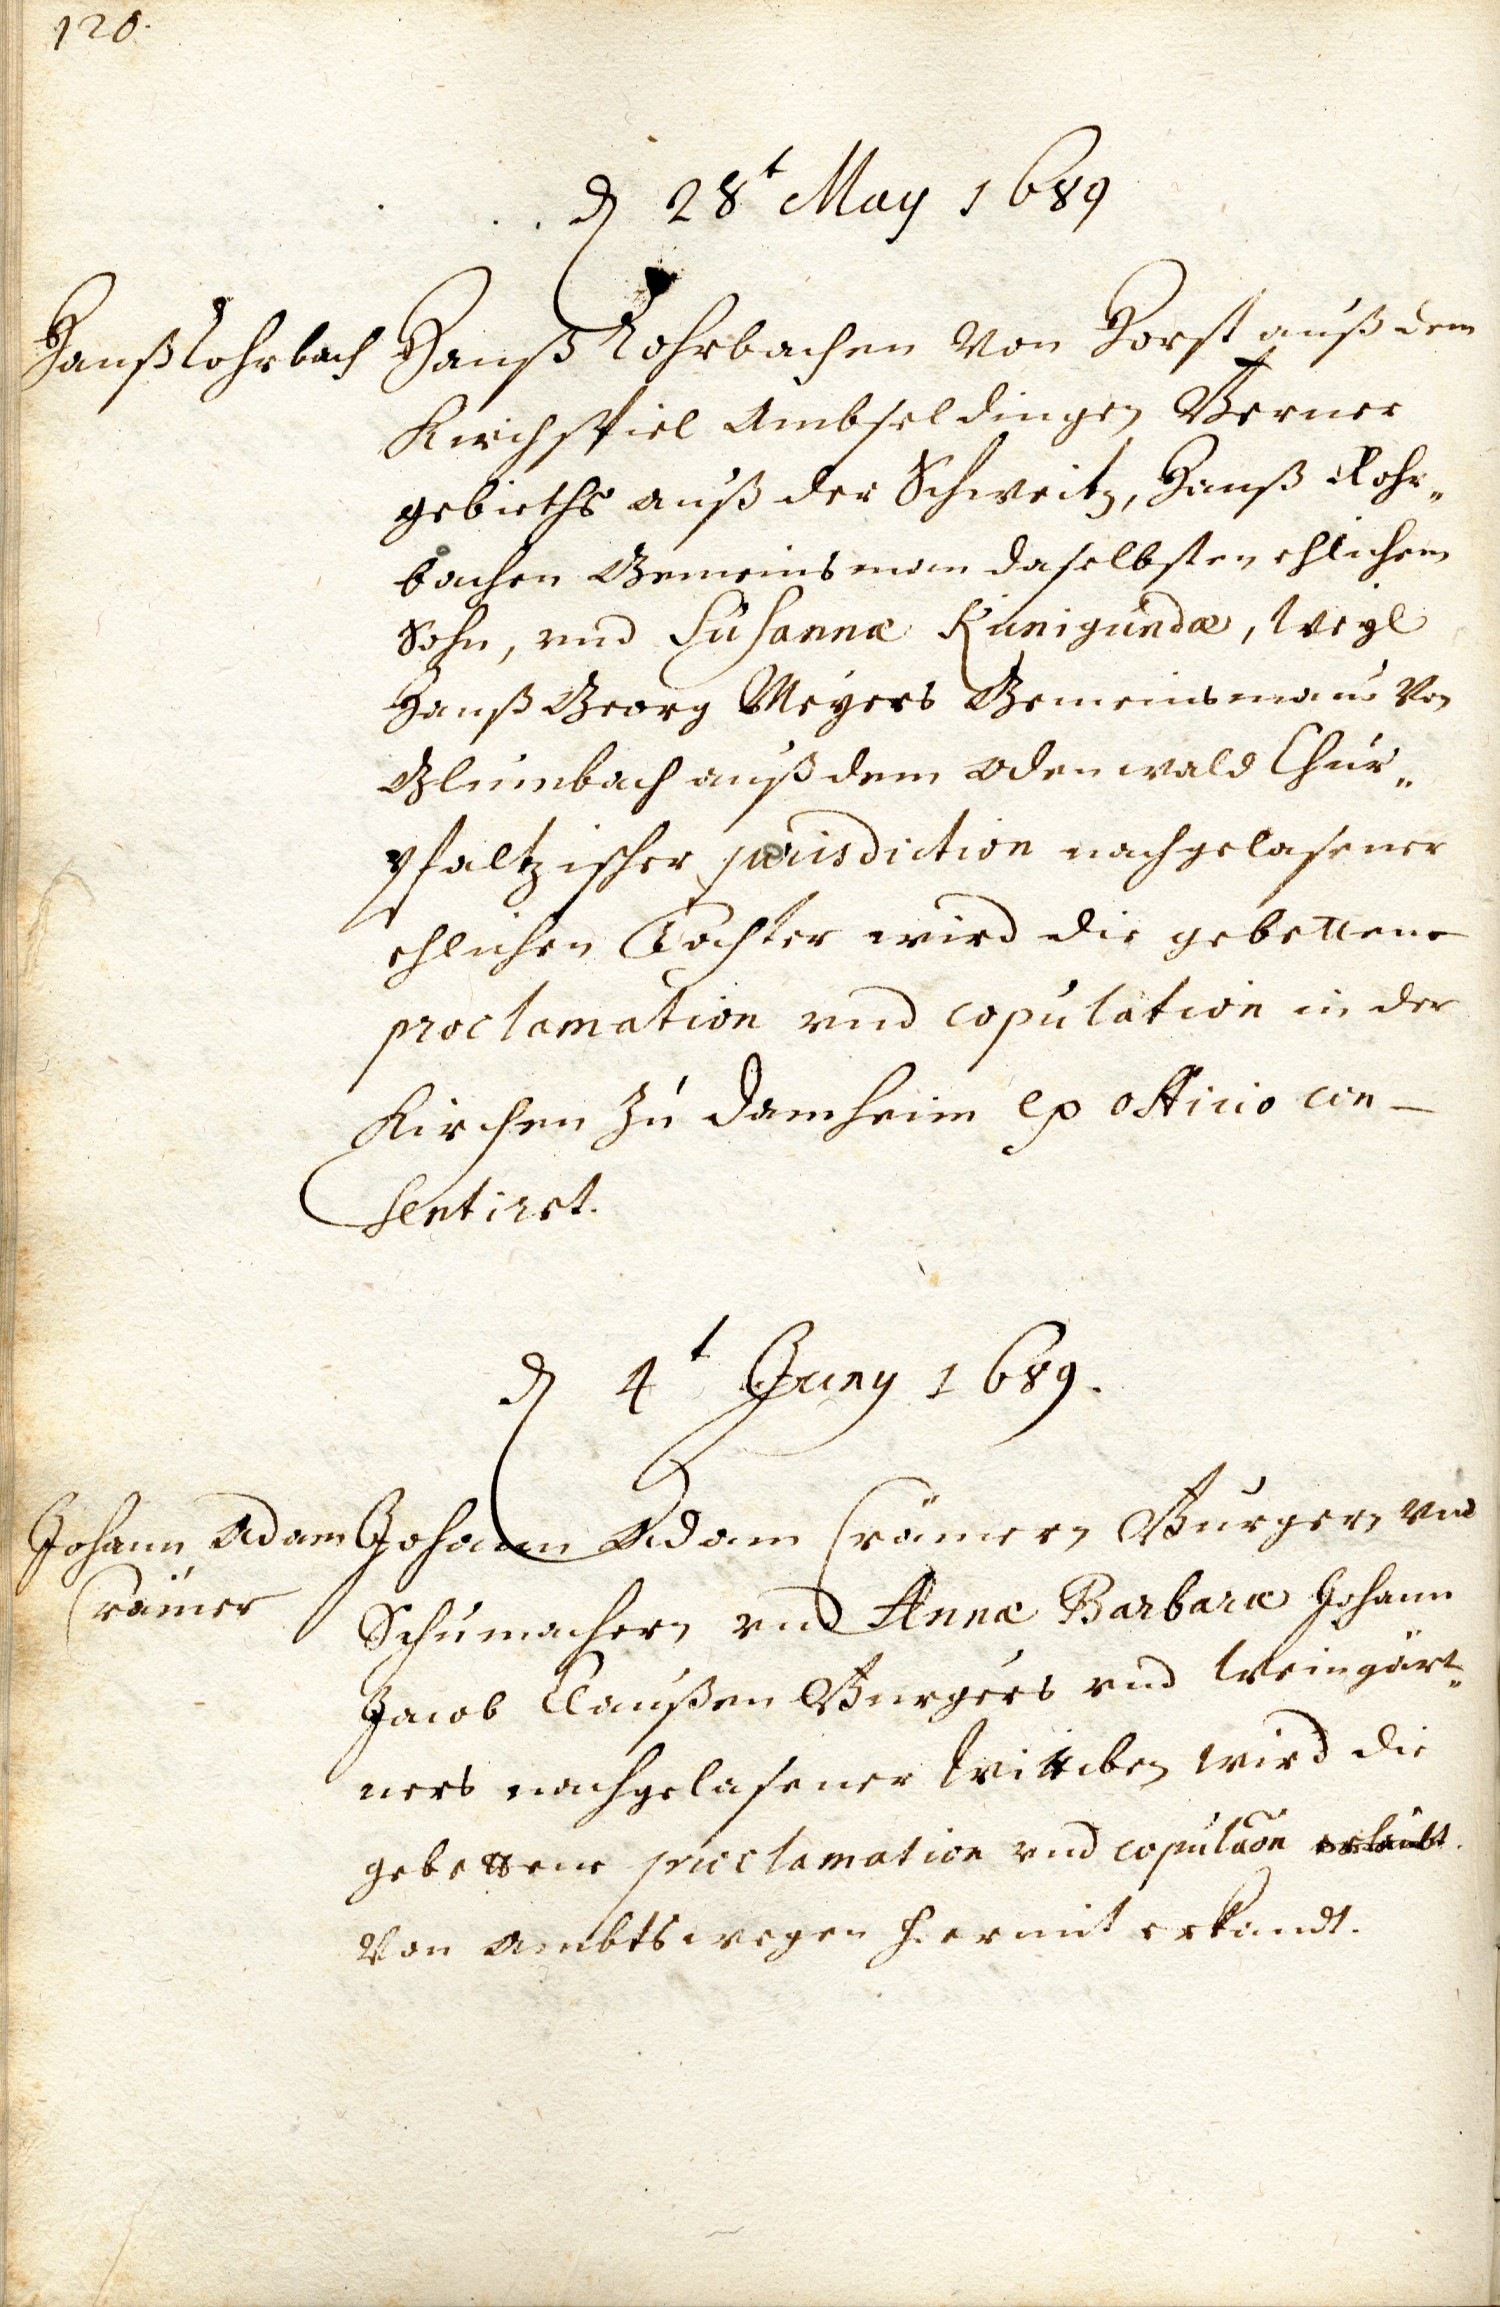 120.
d 28t May 1689
Hanß Rohrbach
Hanß Rohrbachen von Horst auß dem
Kirchspiel Ambseldingen Berner
gebieths auß der Schweitz, Hanß Rohr„
bachen Gemeinsman daselbsten ehlichem
Sohn, und Susannæ Kunigundæ, weyl
Hanß Georg Meyers Gemeinsmans von
Glumbach auß dem odenwald Chur„
pfaltzischer jurisdiction nachgelasener
ehlichen Tochter wird die gebettene
proclamation und copulation in der
Kirchen zu Damheim ex officio con-
sentiret.
d 4t Juny 1689.
Johann Adam
Crämer
Johann Adam Crämern Burgern und
Schumachern und Annæ Barbaræ Johann
Jacob Claußen Burgers und Weingärt„
ners nachgelasener Wittiben wird die
gebettene proclamation und copulaon erlaubt.
von Ambtswegen hiermit erkandt.